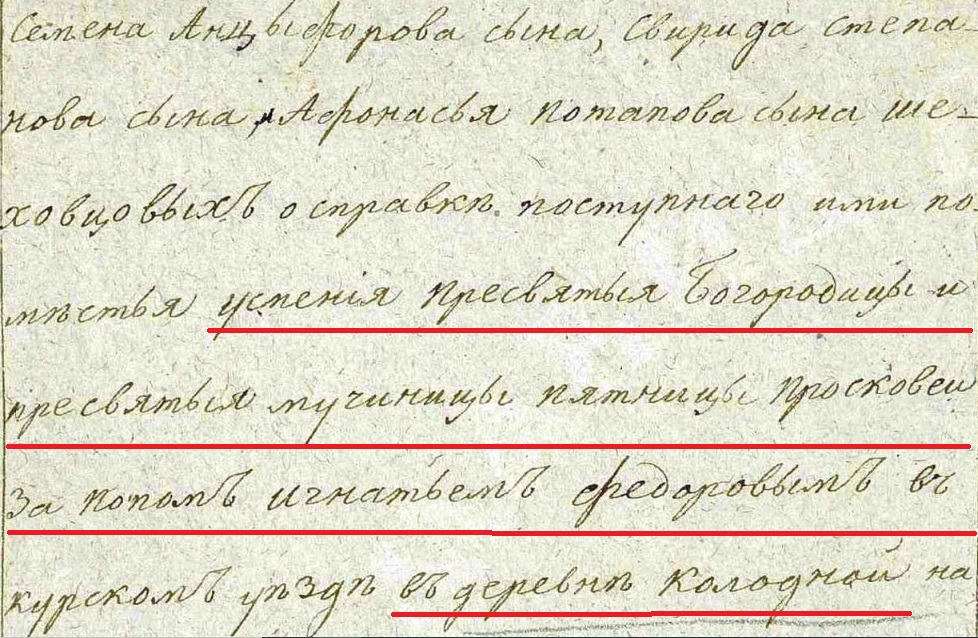 Семена Анцыфорова сына, Свирида степа-
нова сына, Афонасья потапова сына ше-
ховцовыхъ о справкѣ поступнаго ими по-
мѣстья успенія пресвятыя Богородицы и
пресвятыя мучиницы пятницы просковеи
за попомъ игнатьемъ федоровымъ въ
курскомъ уѣздѣ въ деревнѣ колодной на